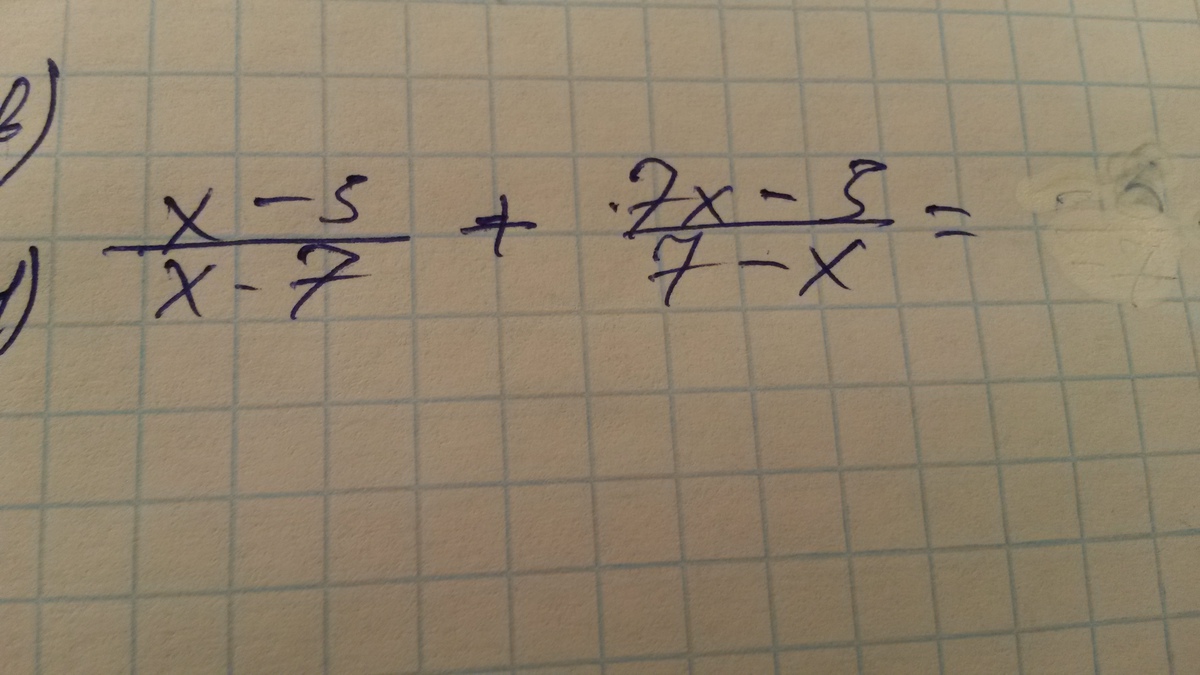 в)
x - 5
x - 7
+
7x - 5
7 - x
=